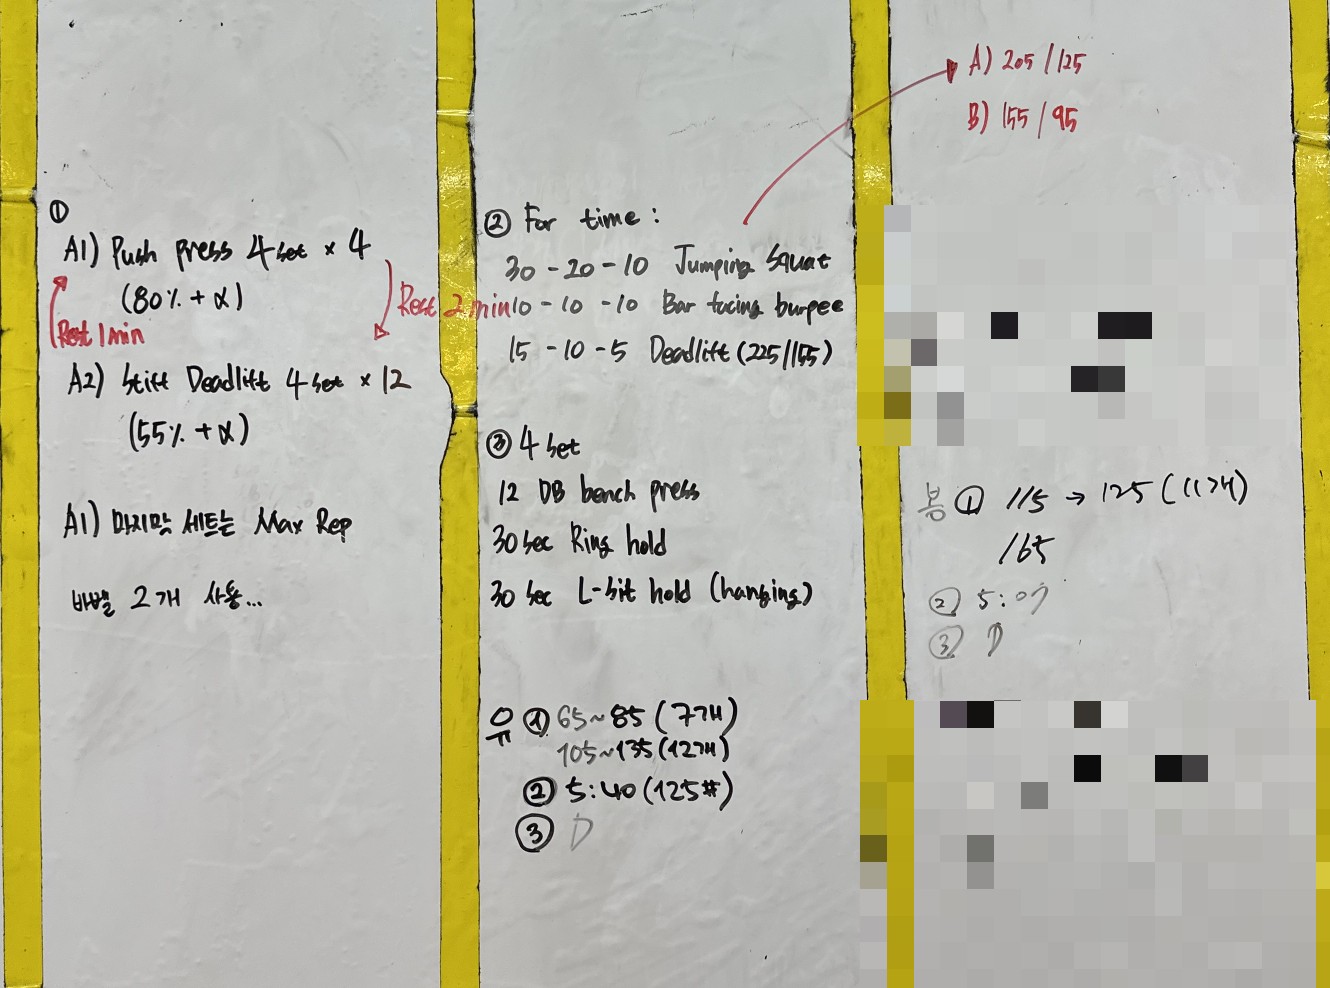 ①
A1) Push press 4set × 4
(80% + α)
Rest 2 min
Rest 1min
A2) Stiff Deadlift 4set × 12
(55% + α)
A1) 마지막 세트는 Max Rep
바벨 2개 사용...
② For time :
30 - 20 - 10 Jumping Squat
10 - 10 - 10 Bar facing burpee
15 - 10 - 5 Deadlift (225/155)
③ 4 set
12 DB bench press
30sec Ring hold
30 sec L-sit hold (hanging)
유 ① 65~85 (7개)
105~135 (12개)
② 5:40 (125#)
③ D
A) 205 / 125
B) 155 / 95
봉 ① 115 → 125 (11개)
165
② 5:07
③ D